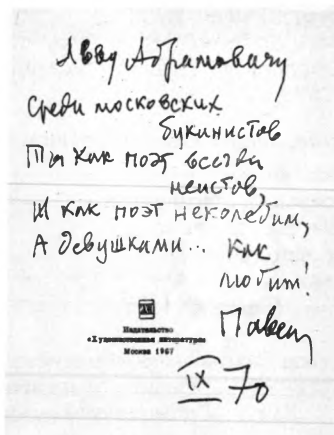 Льву Абрамовичу
Среди московских
букинистов
Ты как поэт всегда
неистов,
И как поэт неколебим,
А девушками... как
любим!
Издательство
«Художественная литература»
Москва 1967
Павел
IX 70